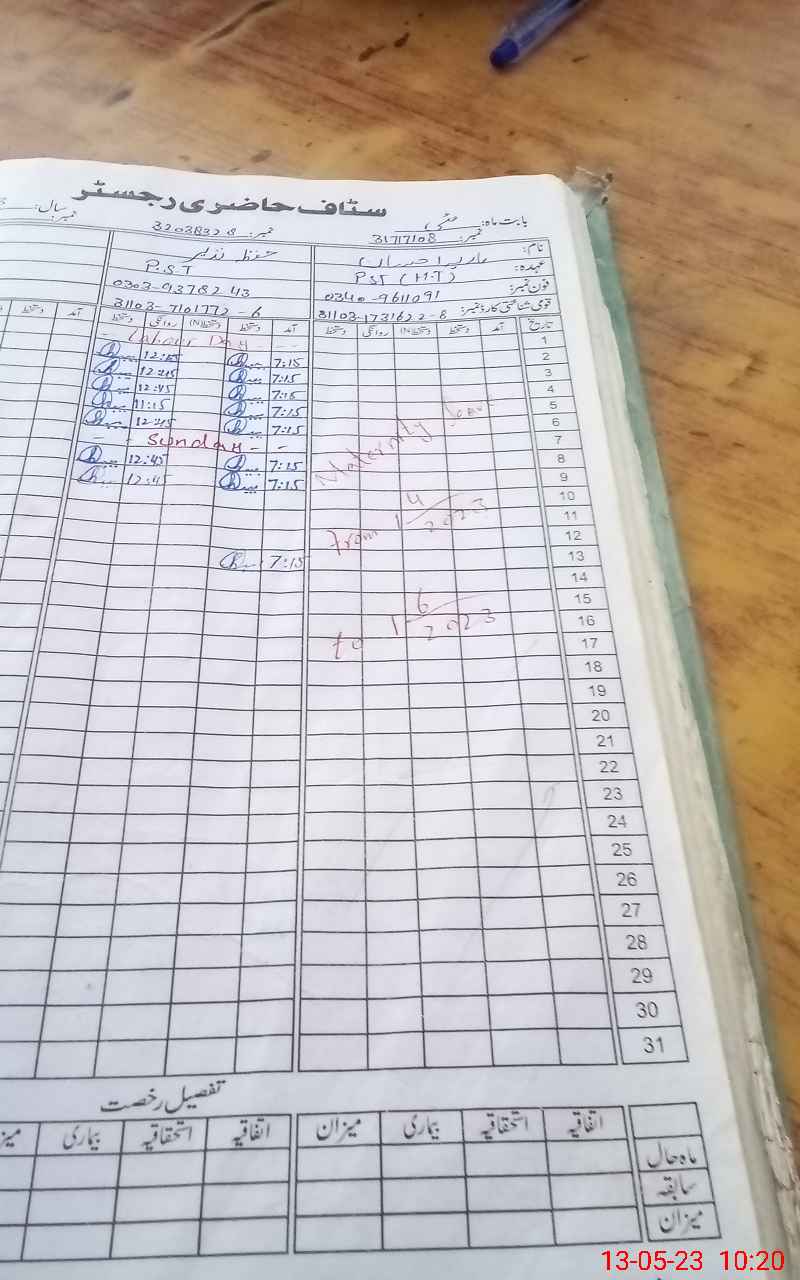 سٹاف حاضری رجسٹر
بابت ماہ: مئی
سال:
نمبر:
نام:
نمبر: 31717108
نمبر: 32038328
عہدہ: PST (H.T)
P.S.T
فون نمبر: 0340-9611091
0303-9378243
قومی شناختی کارڈ نمبر: 31103-1731622-8
31103-7101772-6
تاریخ آمد دستخط دستخط(N) روانگی دستخط
آمد دستخط دستخط(N) روانگی دستخط
آمد دستخط
1 - Labour Day - - -
2 7:15 12:45
3 7:15 12:45
4 7:15 12:45
5 7:15 11:15
6 7:15 12:45
7 - - Sunday - -
8 7:15 12:45
9 7:15 12:45
10
11
12
13 7:15
14
15
16
17
18
19
20
21
22
23
24
25
26
27
28
29
30
31
Maternity
from 1 4 2023
to 1 6 2023
تفصیل رخصت
اتفاقیہ استحقاقیہ بیماری میزان
اتفاقیہ استحقاقیہ بیماری
ماہ حال
سابقہ
میزان
13-05-23 10:20